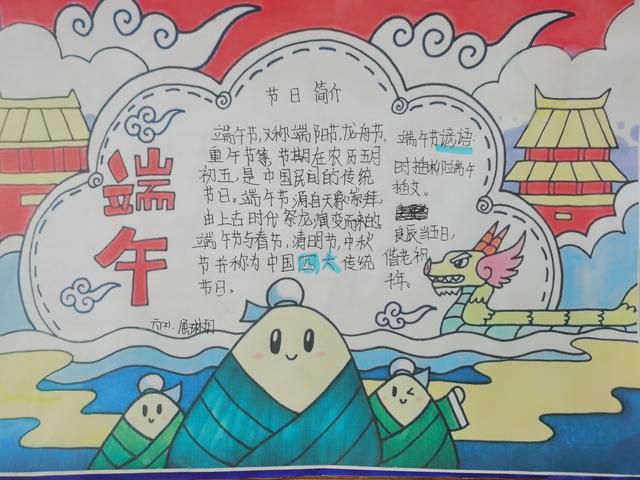 节日简介
端午节,又称端阳节,龙舟节,
重午节等,节期在农历五月
初五,是中国民间的传统
节日。端午节源自天象崇拜,
由上古时代祭龙演变而来的。
端午节与春节,清明节,中秋
节并称为中国四大传统
节日。
端午节谚语
时
端午
良辰当五日,
偕老祝
千年。
端午